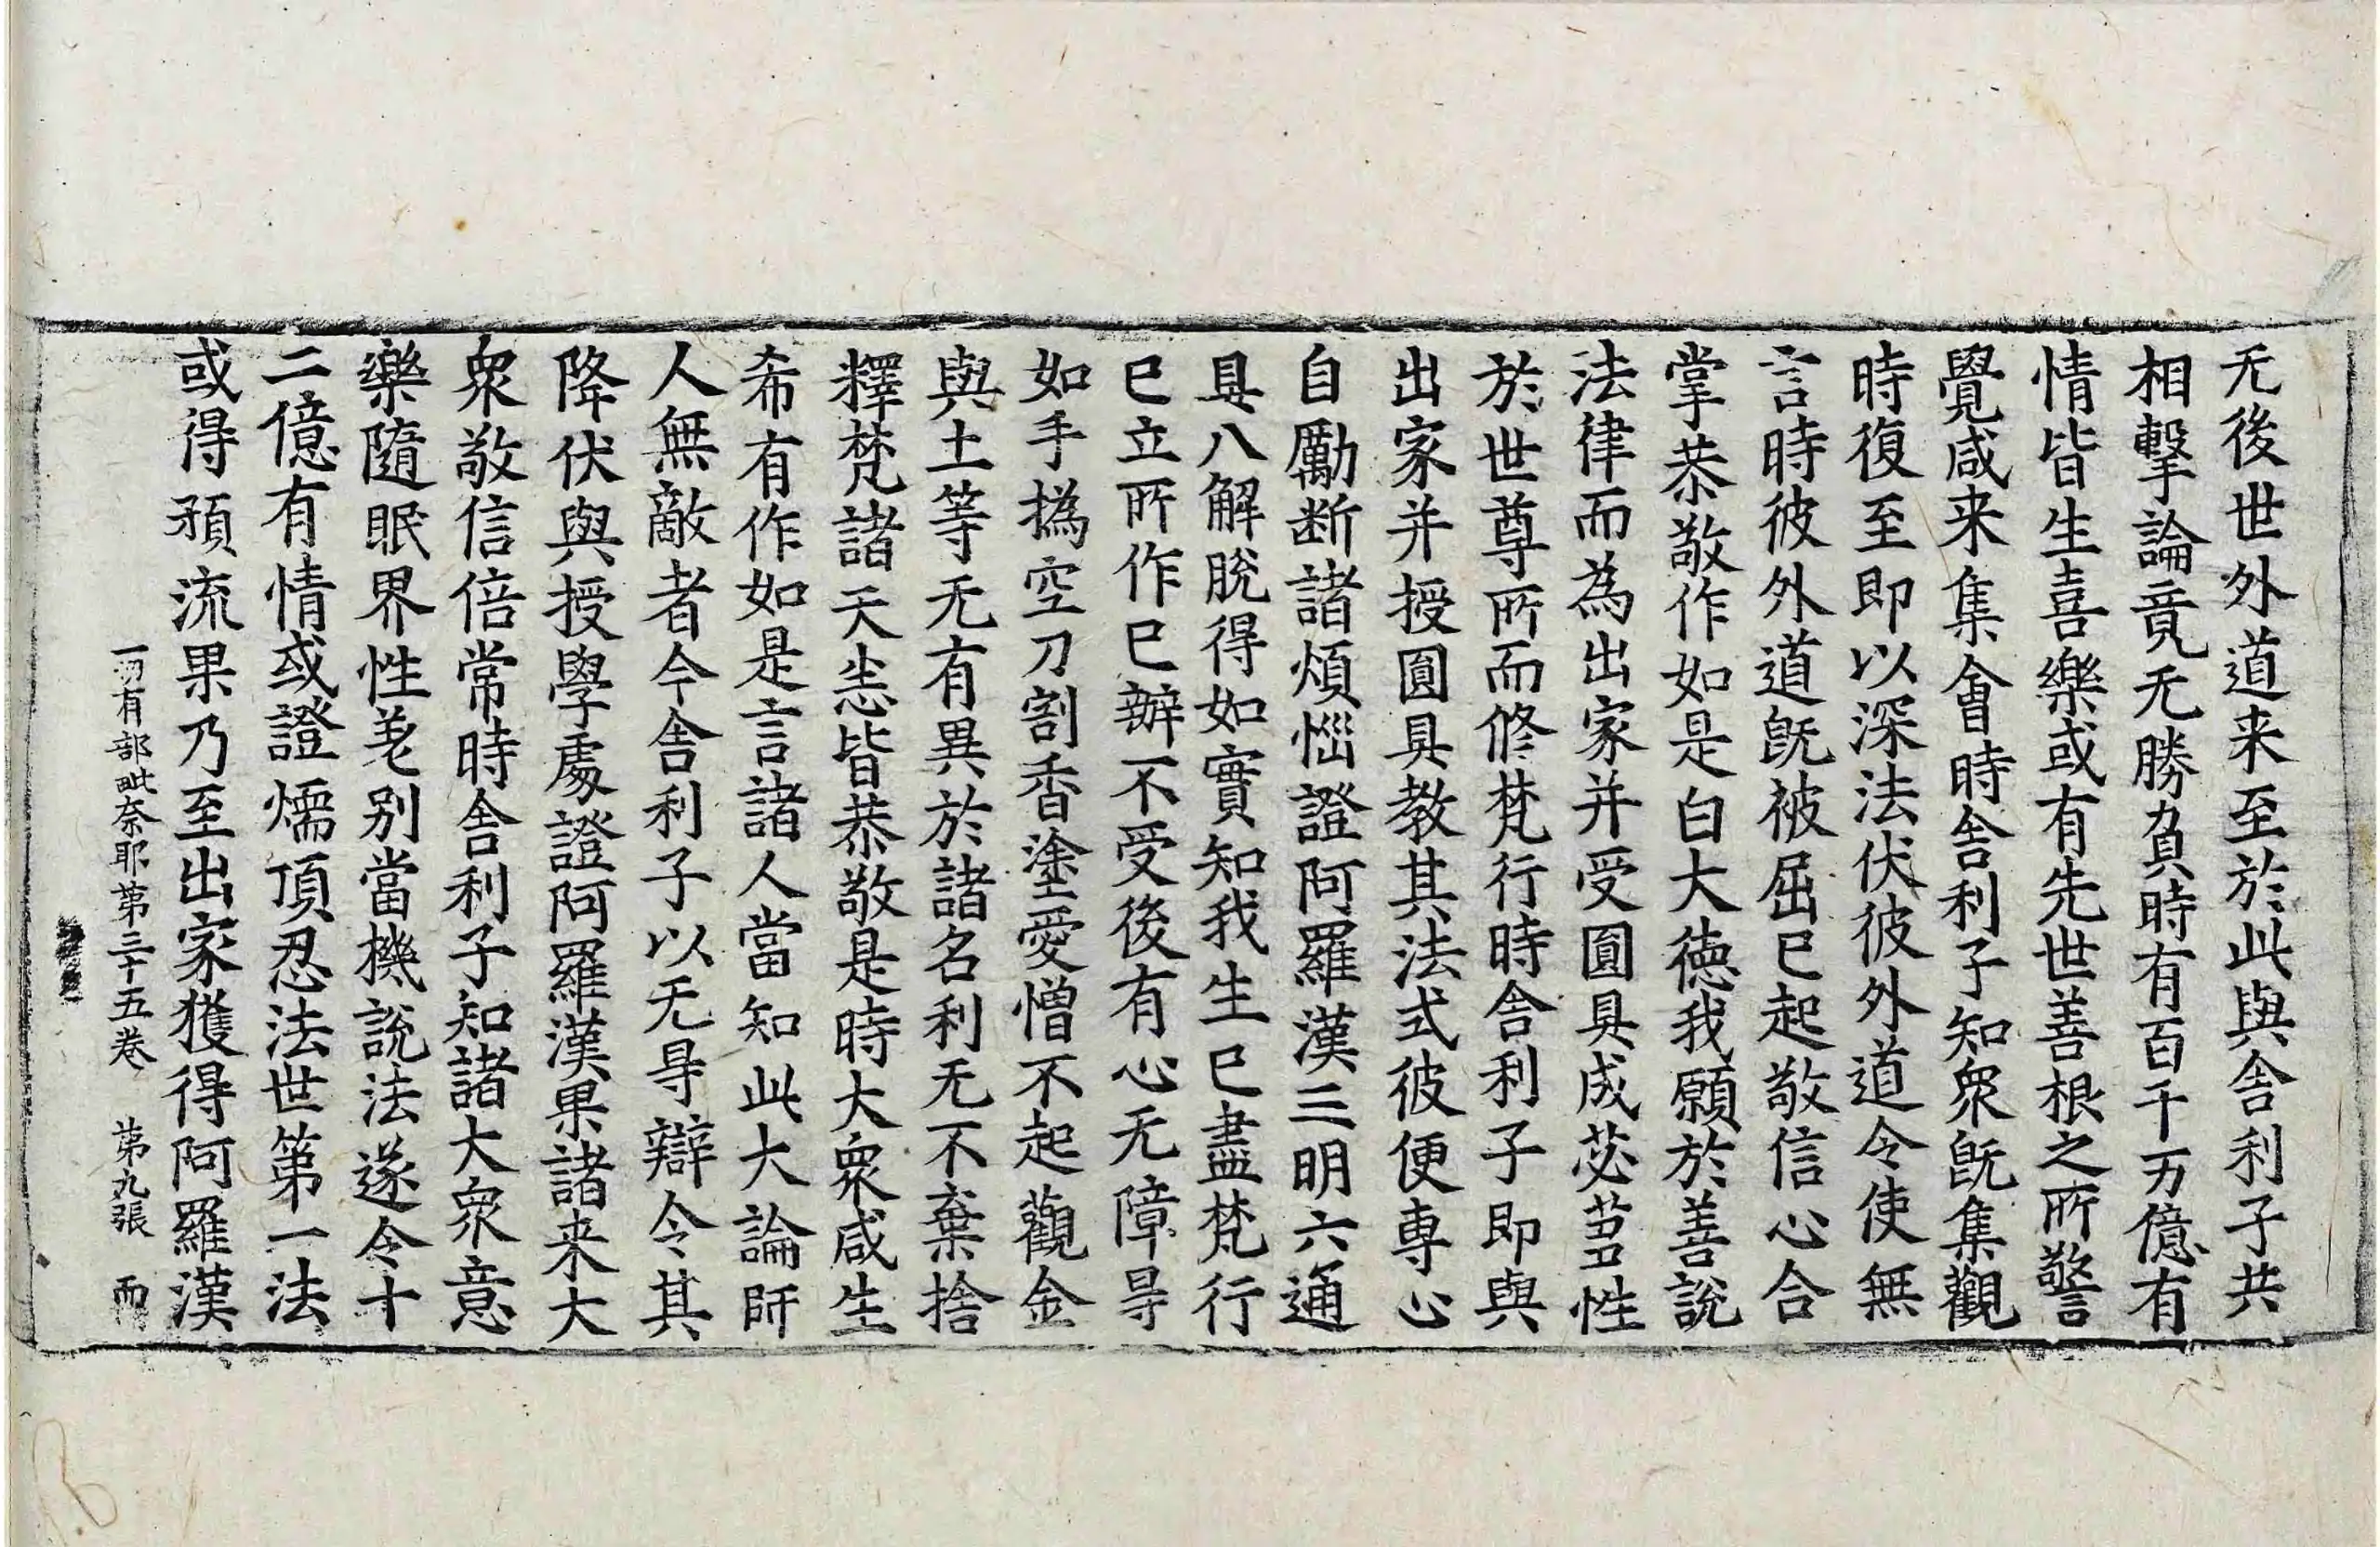 无後世外道来至於此與舎利子共
相擊論竟无勝負時有百千万億有
情皆生喜樂或有先世善根之所警
覺咸来集會時舎利子知衆旣集觀
時復至即以深法伏彼外道令使無
言時彼外道旣被屈已起敬信心合
掌恭敬作如是白大德我願於善說
法律而為出家并受圓具成苾芻性
於世尊所而修梵行時舎利子即與
出家并授圓具教其法式彼便専心
自勵断諸煩惱證阿羅漢三明六通
具八解脫得如實知我生已盡梵行
已立所作已辦不受後有心无障㝵
如手撝空刀割香塗愛憎不起觀金
與土等无有異於諸名利无不棄捨
釋梵諸天悉皆恭敬是時大衆咸生
希有作如是言諸人當知此大論師
人無敵者今舎利子以无㝵辯令其
降伏與授學處證阿羅漢果諸来大
衆敬信倍常時舎利子知諸大衆意
樂隨眠界性差别當機說法遂令十
二億有情或證煗頂忍法世第一法
或得預流果乃至出家獲得阿羅漢
一切有部毗奈耶第三十五卷 第九張 而